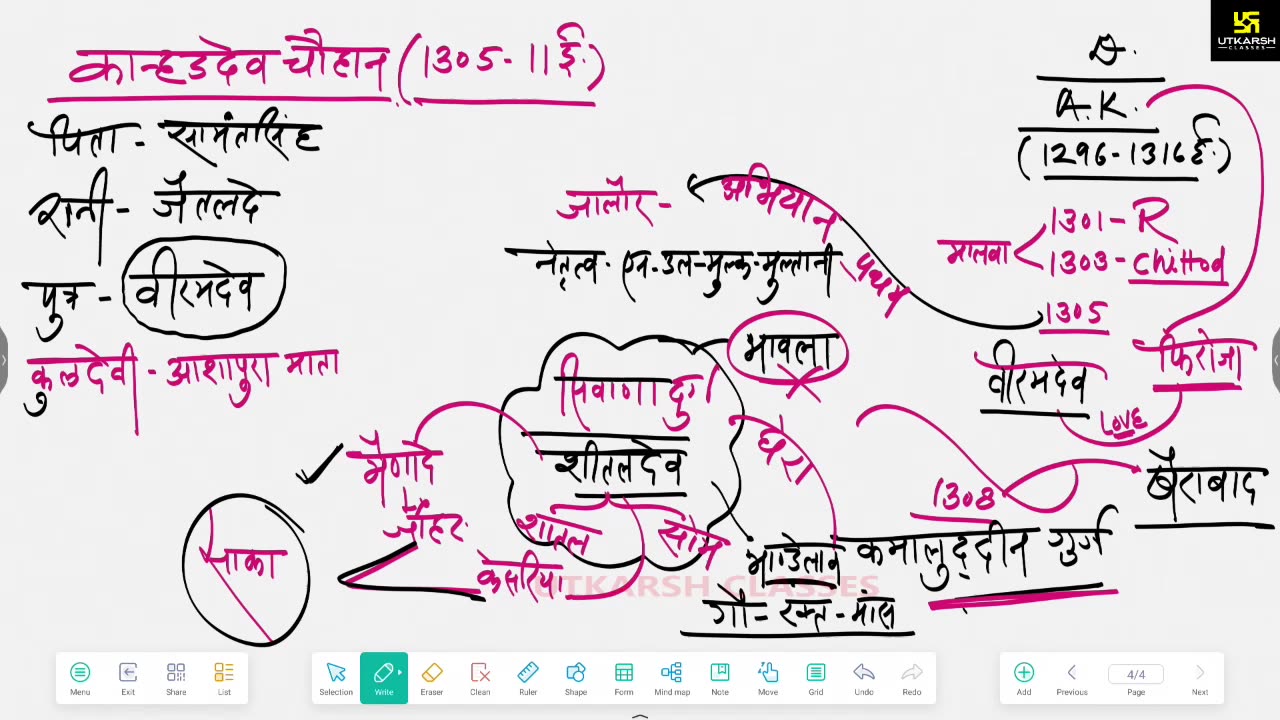 कान्हडदेव चौहान (1305-11ई.)
पिता - सामंतसिंह
रानी - जैतलदे
पुत्र - वीरमदेव
कुलदेवी - आशापुरा माता
UTKARSH CLASSES
D.
A.K.
(1296-1316ई.)
1301 - R
मालवा
1303 - Chittod
1305
वीरमदेव
फिरोजा
LOVE
जालौर - अभियान
प्रथम
भावला
सिवाणा दुर्ग
शीतलदेव
शातल
सोम
मैणादे
जौहर
केसरिया
साका
घेरा
1308
खैराबाद
कमालुद्दीन गुर्ग
गौ = रक्त - मांस
UTKARSH CLASSES
Menu
Exit
Share
List
Selection
Write
Eraser
Clean
Ruler
Shape
Form
Mind map
Note
Move
Grid
Undo
Redo
Add
Previous
4/4
Page
Next